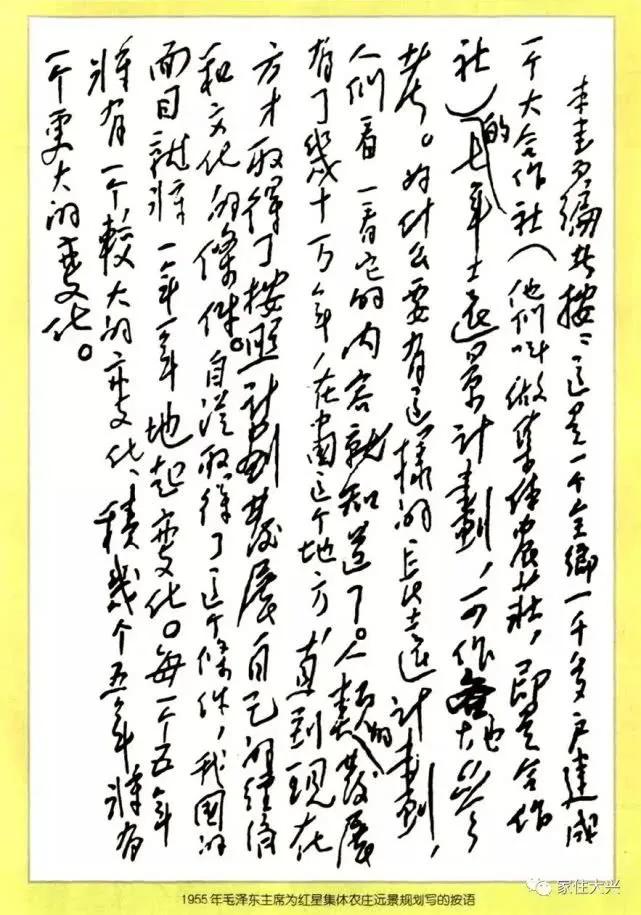 本書編者按：这是一个全鄉一千多户建成
一个大合作社（他们叫做集体農莊，即是合作
社）的七年远景計劃，可作各地參
考。为什么要有这样的長远計劃，
人们看一看它的内容就知道了。人類的發展
有了幾十万年，在中国这个地方，直到現在
方才取得了按照計劃發展自己的經济
和文化的條件。自從取得了这个條件，我国的
面目就將一年一年地起变化。每一个五年
將有一个較大的变化，積幾个五年將有
一个更大的变化。
1955年毛泽东主席为红星集体农庄远景规划写的按语
家住大兴